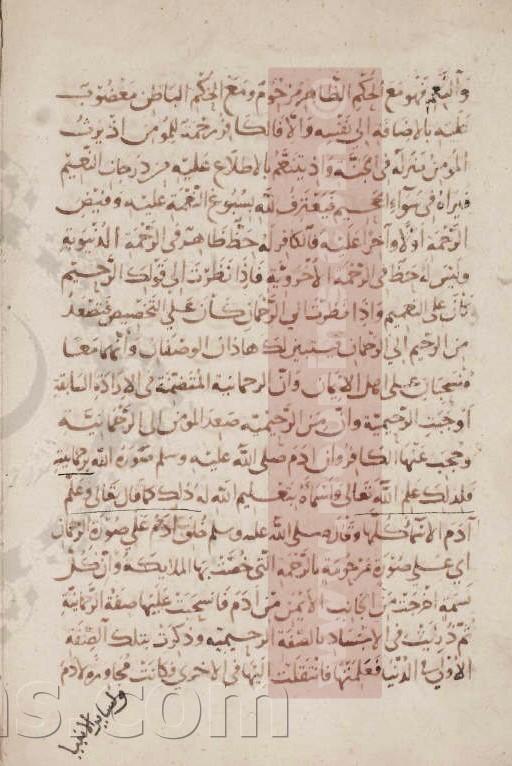 والنعيم فهو مع الحكم الظاهر مرحوم ومع الحكم الباطن مغضوب
عليه بالإضافة إلى نفسه والا فالكافر رحمة للمؤمن اذ يرث
المؤمن منزله في الجنة واذ يتنعم بالاطلاع عليه من درجات النعيم
فيراه في سواء الجحيم فيعترف لله بسبوغ النعمة عليه وفيض
الرحمة اولا واخرا عليه فالكافر له حظ ظاهر في الرحمة الدنيوية
وليس له حظ في الرحمة الاخروية فاذا نظرت الى قولك الرحيم
كان على التعميم واذا نظرت الى الرحمان كان على التخصيص فتصعد
من الرحيم الى الرحمان فيستبين لك هاذان الوصفان وانهما معا
منسحبان على اهل الايمان وان الرحمانية المتقدمة في الارادة السابقة
اوجبت الرحيمية وان من الرحيمية صعد المؤمن الى الرحمانية
وحجب عنها الكافر وان ادم صلى الله عليه وسلم صورة الله برحمانيته
فلذلك علم الله تعالى واسماه بتعليم الله له ذلك كما قال تعالى وعلم
آدم الاسماء كلها وقال صلى الله عليه وسلم خلق آدم على صورة الرحمان
اي على صورة مرحومة بالرحمة التي خصت بها الملايكة وان كل
نسمة اخرجت من الجانب الايمن من آدم فانسحبت عليها صفة الرحمانية
ثم دنيت في الاجساد بالصفة الرحيمية وذكرت بتلك الصفة
الاولى في الدنيا فعلمتها فانتقلت اليها في الاخرى فكانت مجاورة لآدم
ولساير الانبيا
ns.com